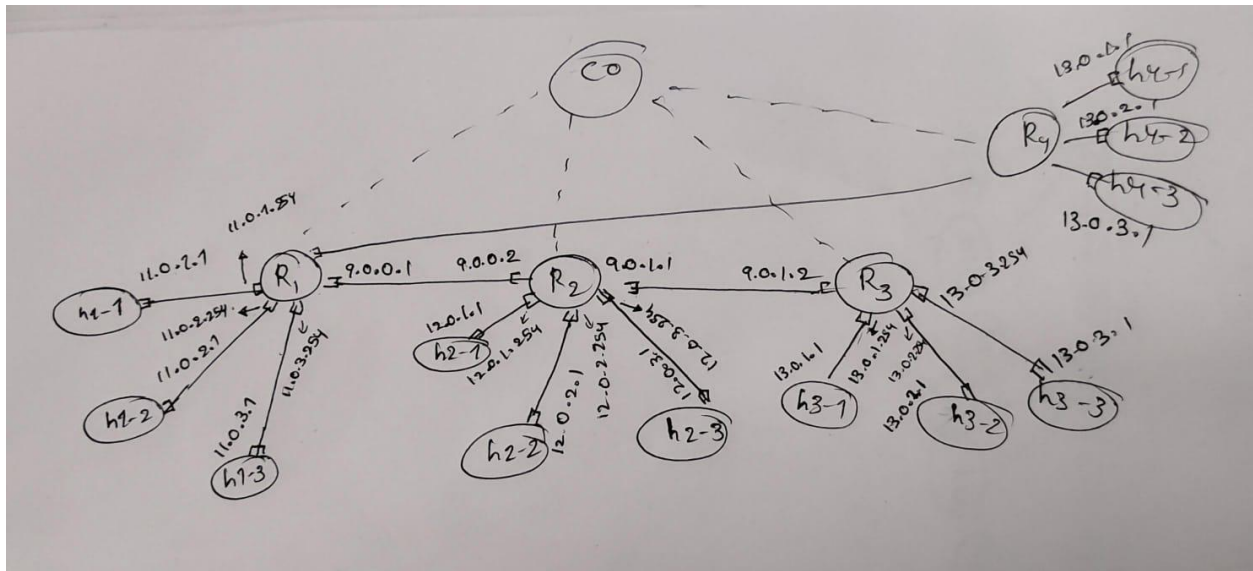 C0
13.0.1.1
h4-1
13.0.2.1
R4
h4-2
h4-3
13.0.3.1
11.0.1.254
11.0.1.1
R1
9.0.0.1
9.0.0.2
R2
9.0.1.1
9.0.1.2
R3
13.0.3254
h1-1
11.0.2.254
11.0.2.1
11.0.3.254
11.0.3.1
h1-2
h1-3
12.0.1.1
h2-1
12.0.1.254
12.0.2.1
12.0.2.254
12.0.3.1
12.0.3.254
h2-2
h2-3
13.0.1.1
13.0.1.254
13.0.2.1
13.0.3.1
h3-1
h3-2
h3-3